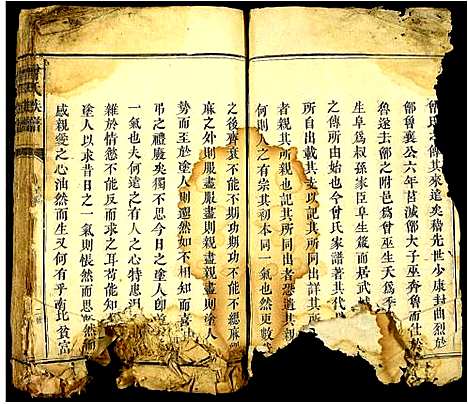 曾氏之傳其來遠矣稽先世少康封曲烈於
鄫魯襄公六年莒滅鄫大子巫奔魯而仕於
魯遂去鄫之附邑為曾巫生夭為季
生阜為叔孫家臣阜生蒧而居武城
之傳所由始也今曾氏家譜著其代
所自出載其支以記其所同出將
者親其所親也記其所同出者恐遺其親
何則人之有宗其初本同一氣也然更數
之後齊衰不能不期功期功不能不緦麻緦
麻之外則服盡服盡則親盡親盡則塗人
勢而至於塗人則邈然如不相知而
弔之禮廢矣獨不思今日之塗人即昔
一氣也夫何遠之有人之心特患溫
雜於物慾不能反而求之耳苟能知
塗人以求昔日之一氣則悵然而思勃然
感親愛之心油然而生又何有乎南北貧富
曾氏族譜